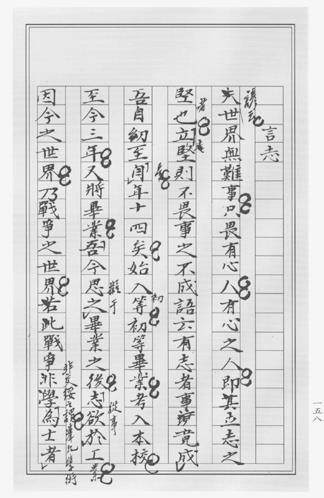 言志
夫世界無難事只畏有心人有心之人即其立志之
堅也志堅則不畏事之不成語云有志者事竟成
吾自幼至年十四矣始入初等初等畢業考入本校
至今三年又將畢業吾今思之畢業之後志欲於工業
因今之世界乃戰爭之世界若此戰爭非學為士者
一五八